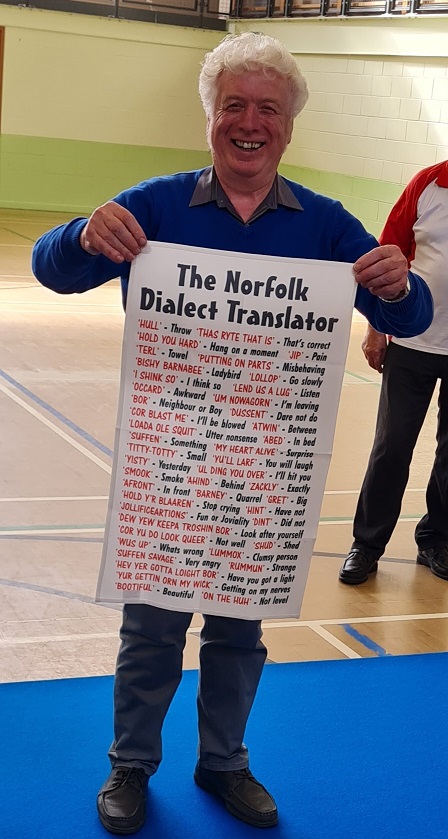 The Norfolk
Dialect Translator
'HULL' - Throw 'THAS RYTE THAT IS' - That's correct
'HOLD YOU HARD' - Hang on a moment 'JIP' - Pain
'TERL' - Towel 'PUTTING ON PARTS' - Misbehaving
'BISHY BARNABEE' - Ladybird 'LOLLOP' - Go slowly
'I SHINK SO' - I think so 'LEND US A LUG' - Listen
'OCCARD' - Awkward 'UM NOWAGORN' - I'm leaving
'BOR' - Neighbour or Boy 'DUSSENT' - Dare not do
'COR BLAST ME' - I'll be blowed 'ATWIN' - Between
'LOADA OLE SQUIT' - Utter nonsense 'ABED' - In bed
'SUFFEN' - Something 'MY HEART ALIVE' - Surprise
'TITTY-TOTTY' - Small 'YU'LL LARF' - You will laugh
'YISTY' - Yesterday 'UL DING YOU OVER' - I'll hit you
'SMOOK' - Smoke 'AHIND' - Behind 'ZACKLY' - Exactly
'AFRONT' - In front 'BARNEY' - Quarrel 'GRET' - Big
'HOLD Y'R BLAAREN' - Stop crying 'HINT' - Have not
'JOLLIFICEARTIONS' - Fun or Joviality 'DINT' - Did not
'DEW YEW KEEPA TROSHIN BOR' - Look after yourself
'COR YU DO LOOK QUEER' - Not well 'SHUD' - Shed
'WUS UP' - Whats wrong 'LUMMOX' - Clumsy person
'SUFFEN SAVAGE' - Very angry 'RUMMUN' - Strange
'HEY YER GOTTA LOIGHT BOR' - Have you got a light
'YUR GETTIN ORN MY WICK' - Getting on my nerves
'BOOTIFUL' - Beautiful 'ON THE HUH' - Not level